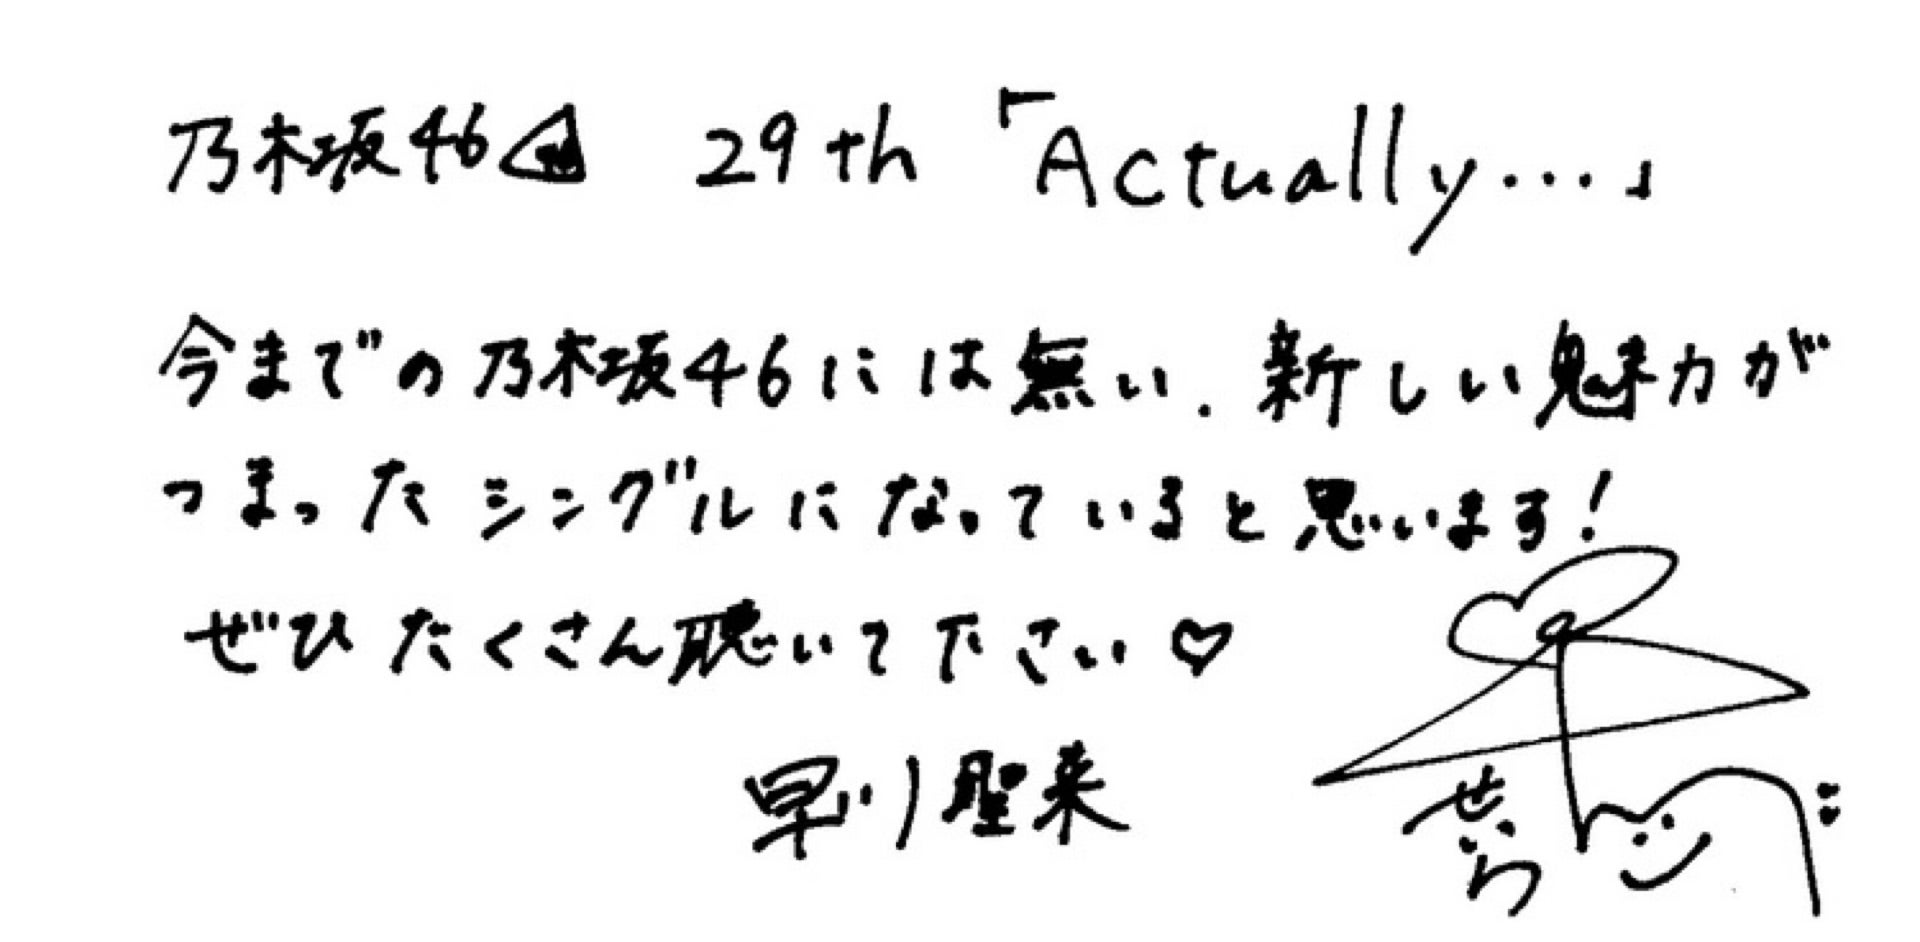 乃木坂46 29th 「Actually...」
今までの乃木坂46には無い、新しい魅力が
つまったシングルになっていると思います!
ぜひたくさん聴いて下さい♡
早川聖来
せいら